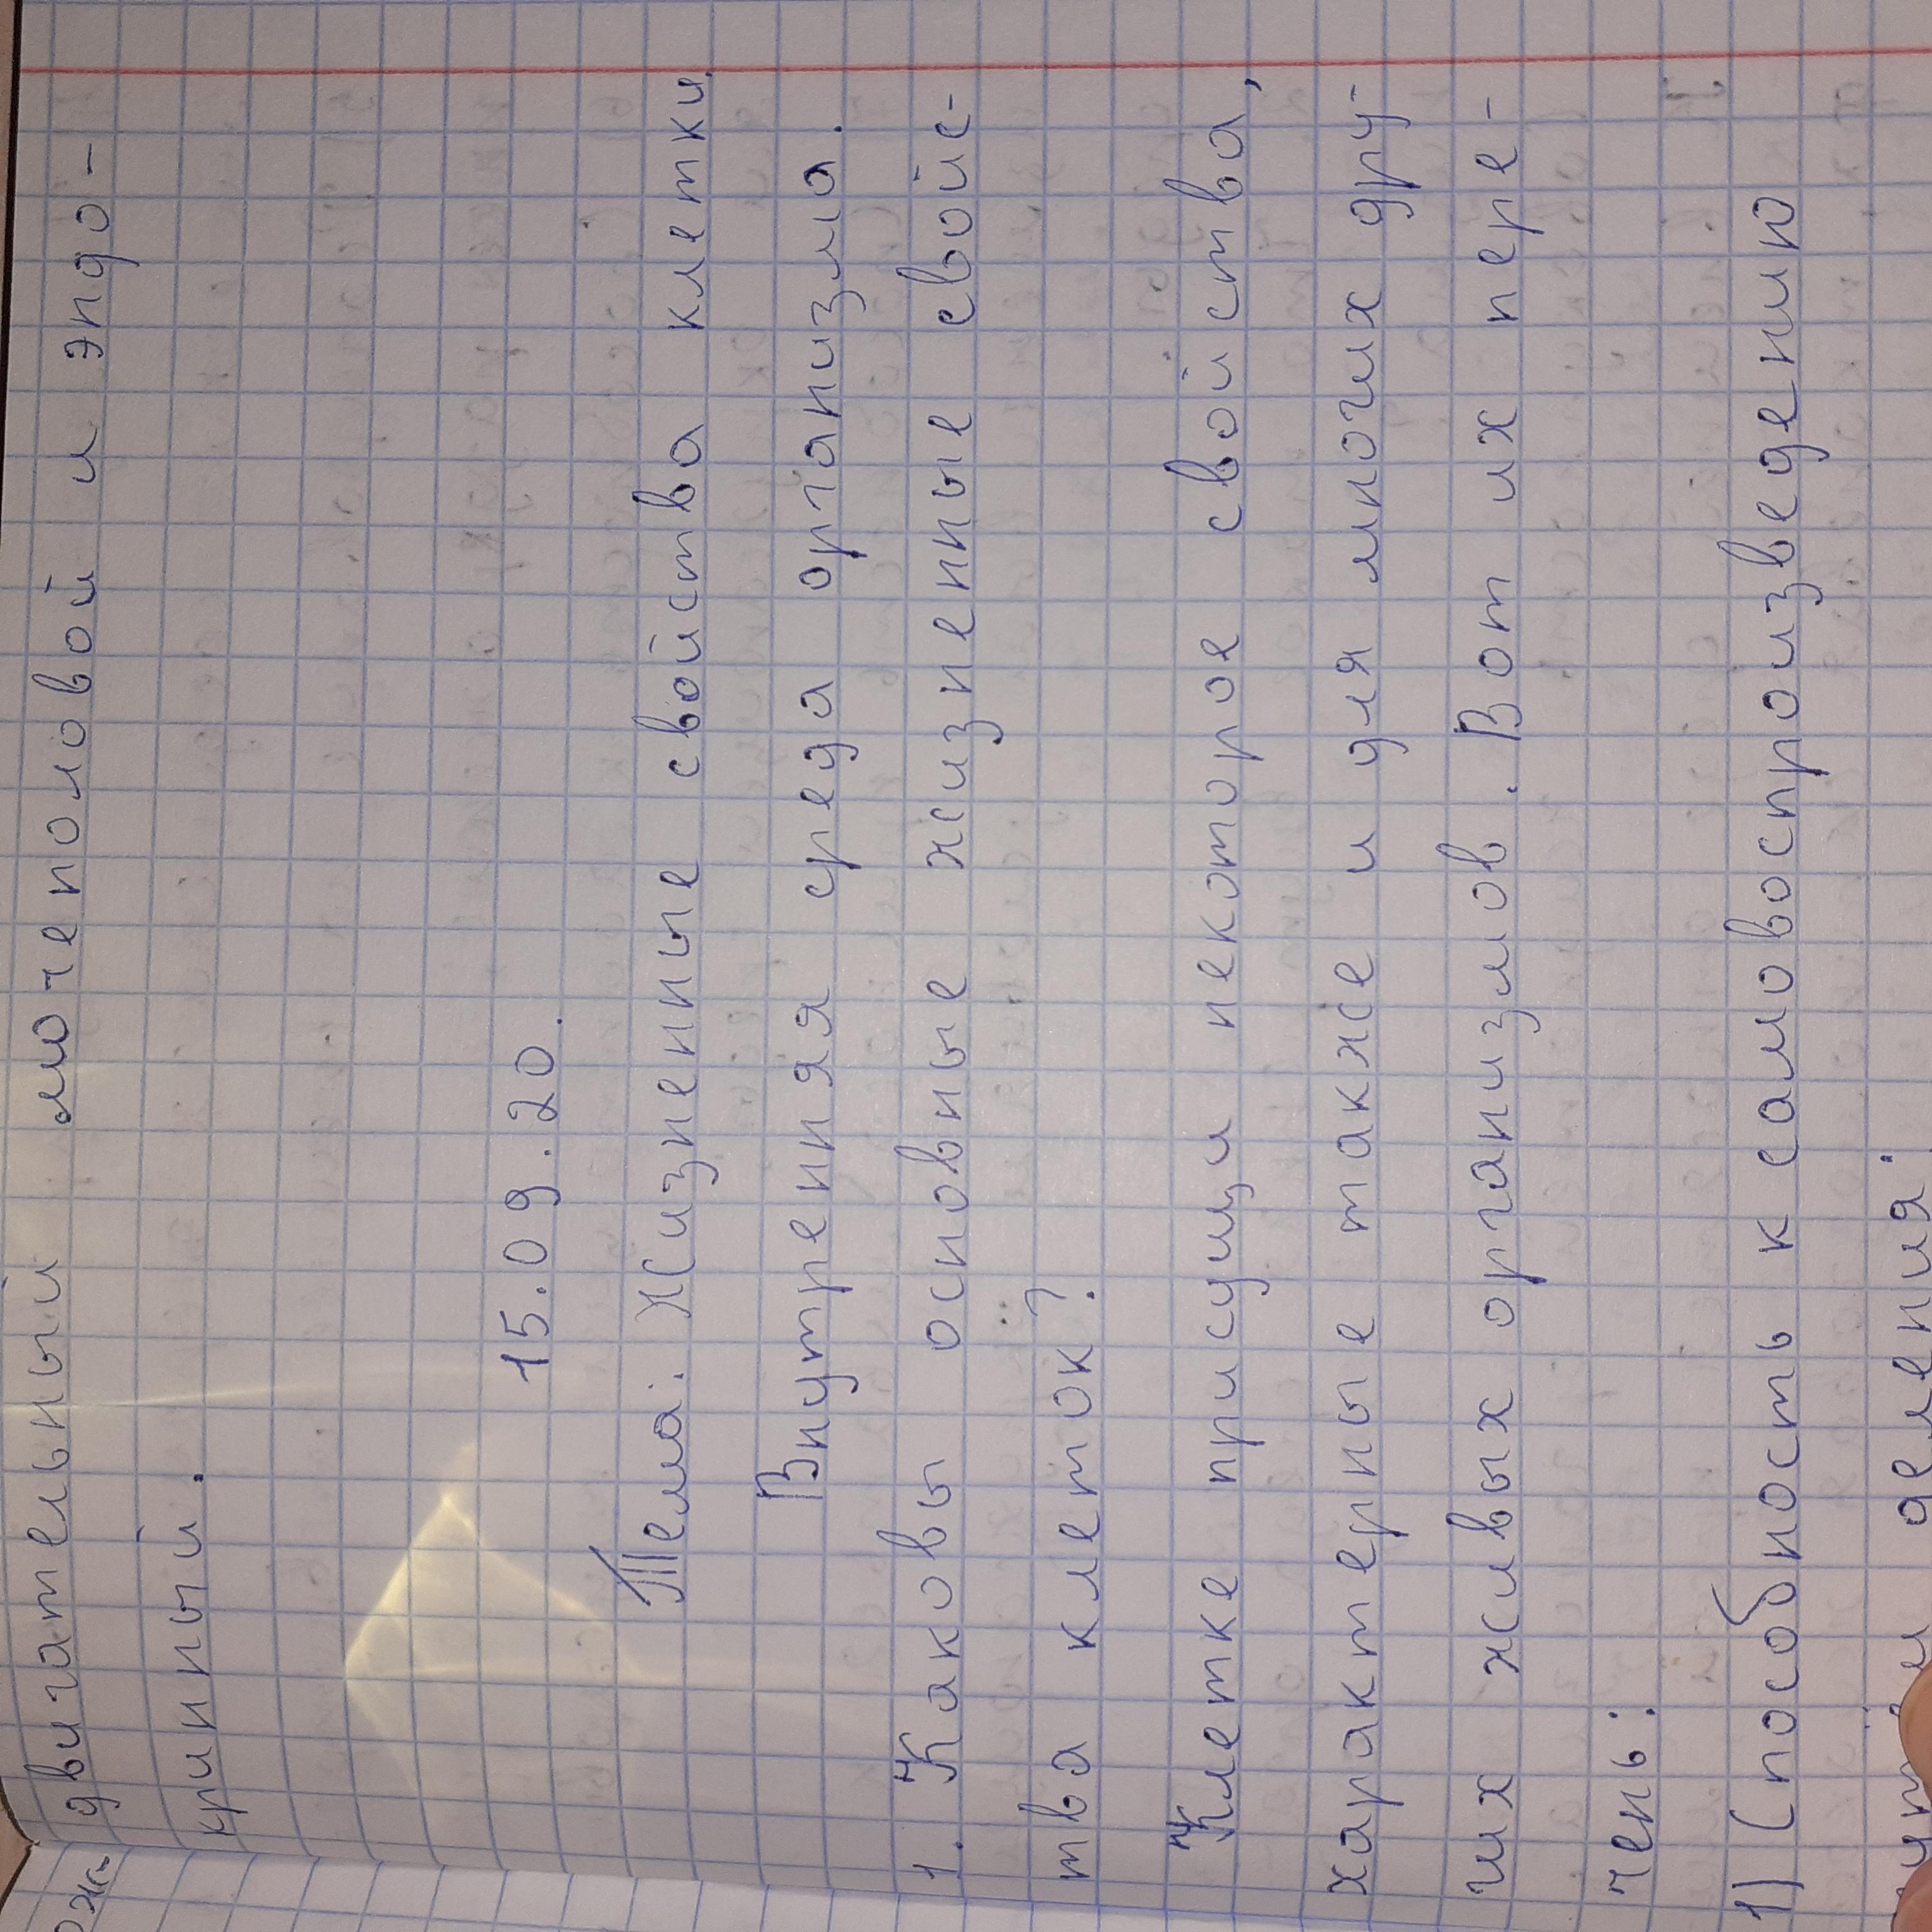 двигательный мочеполовой и эндо-
кринный.
15.09.20.
Тема: Жизненные свойства клетки.
Внутренняя среда организма.
1. Каковы основные жизненные свойс-
тва клеток?
Клетке присущи некоторое свойства,
характерные также и для многих дру-
их живых организмов. Вот их пере-
чень:
1) Способность к самовоспроизведению
деления.